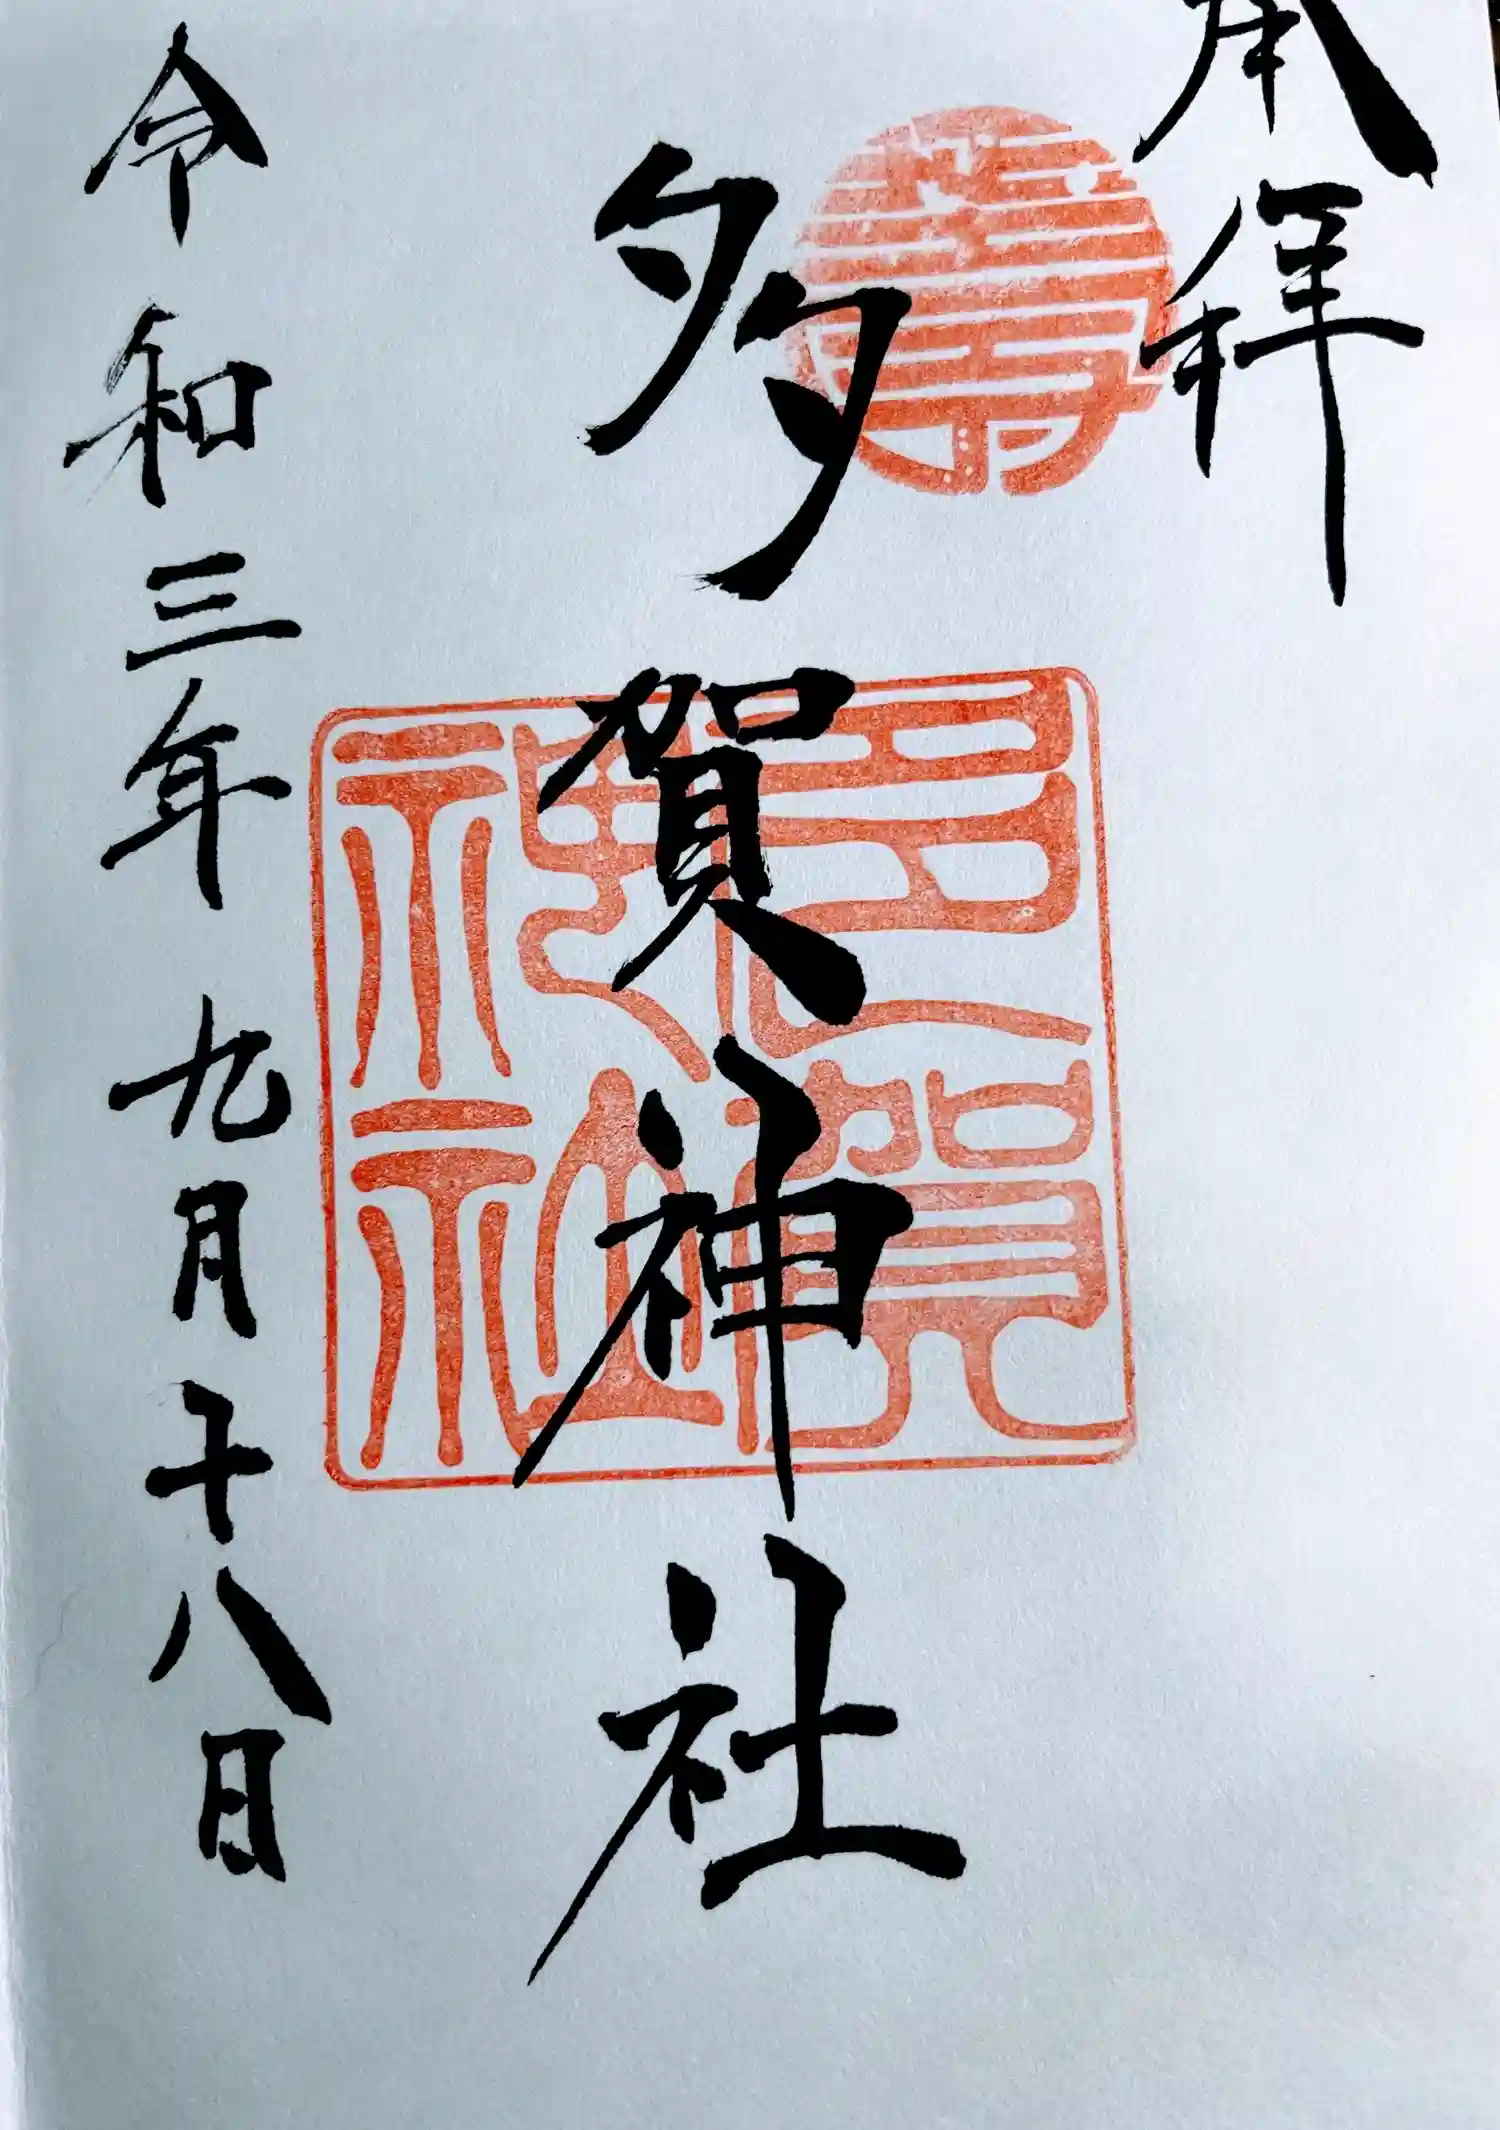 奉拝
多賀神社
多賀神社
令和三年九月十八日